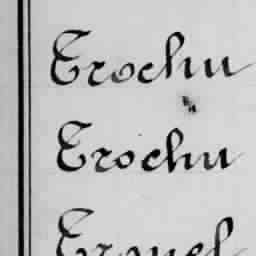 Trochu
Trochu